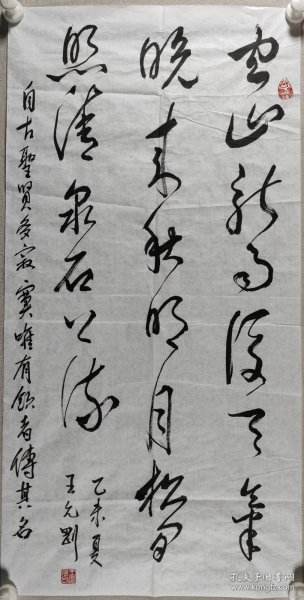 空山新雨後天氣
晚來秋明月松間
照清泉石上流
自古聖賢多寂寞唯有飲者傳其名
乙未夏
孔夫子旧书网